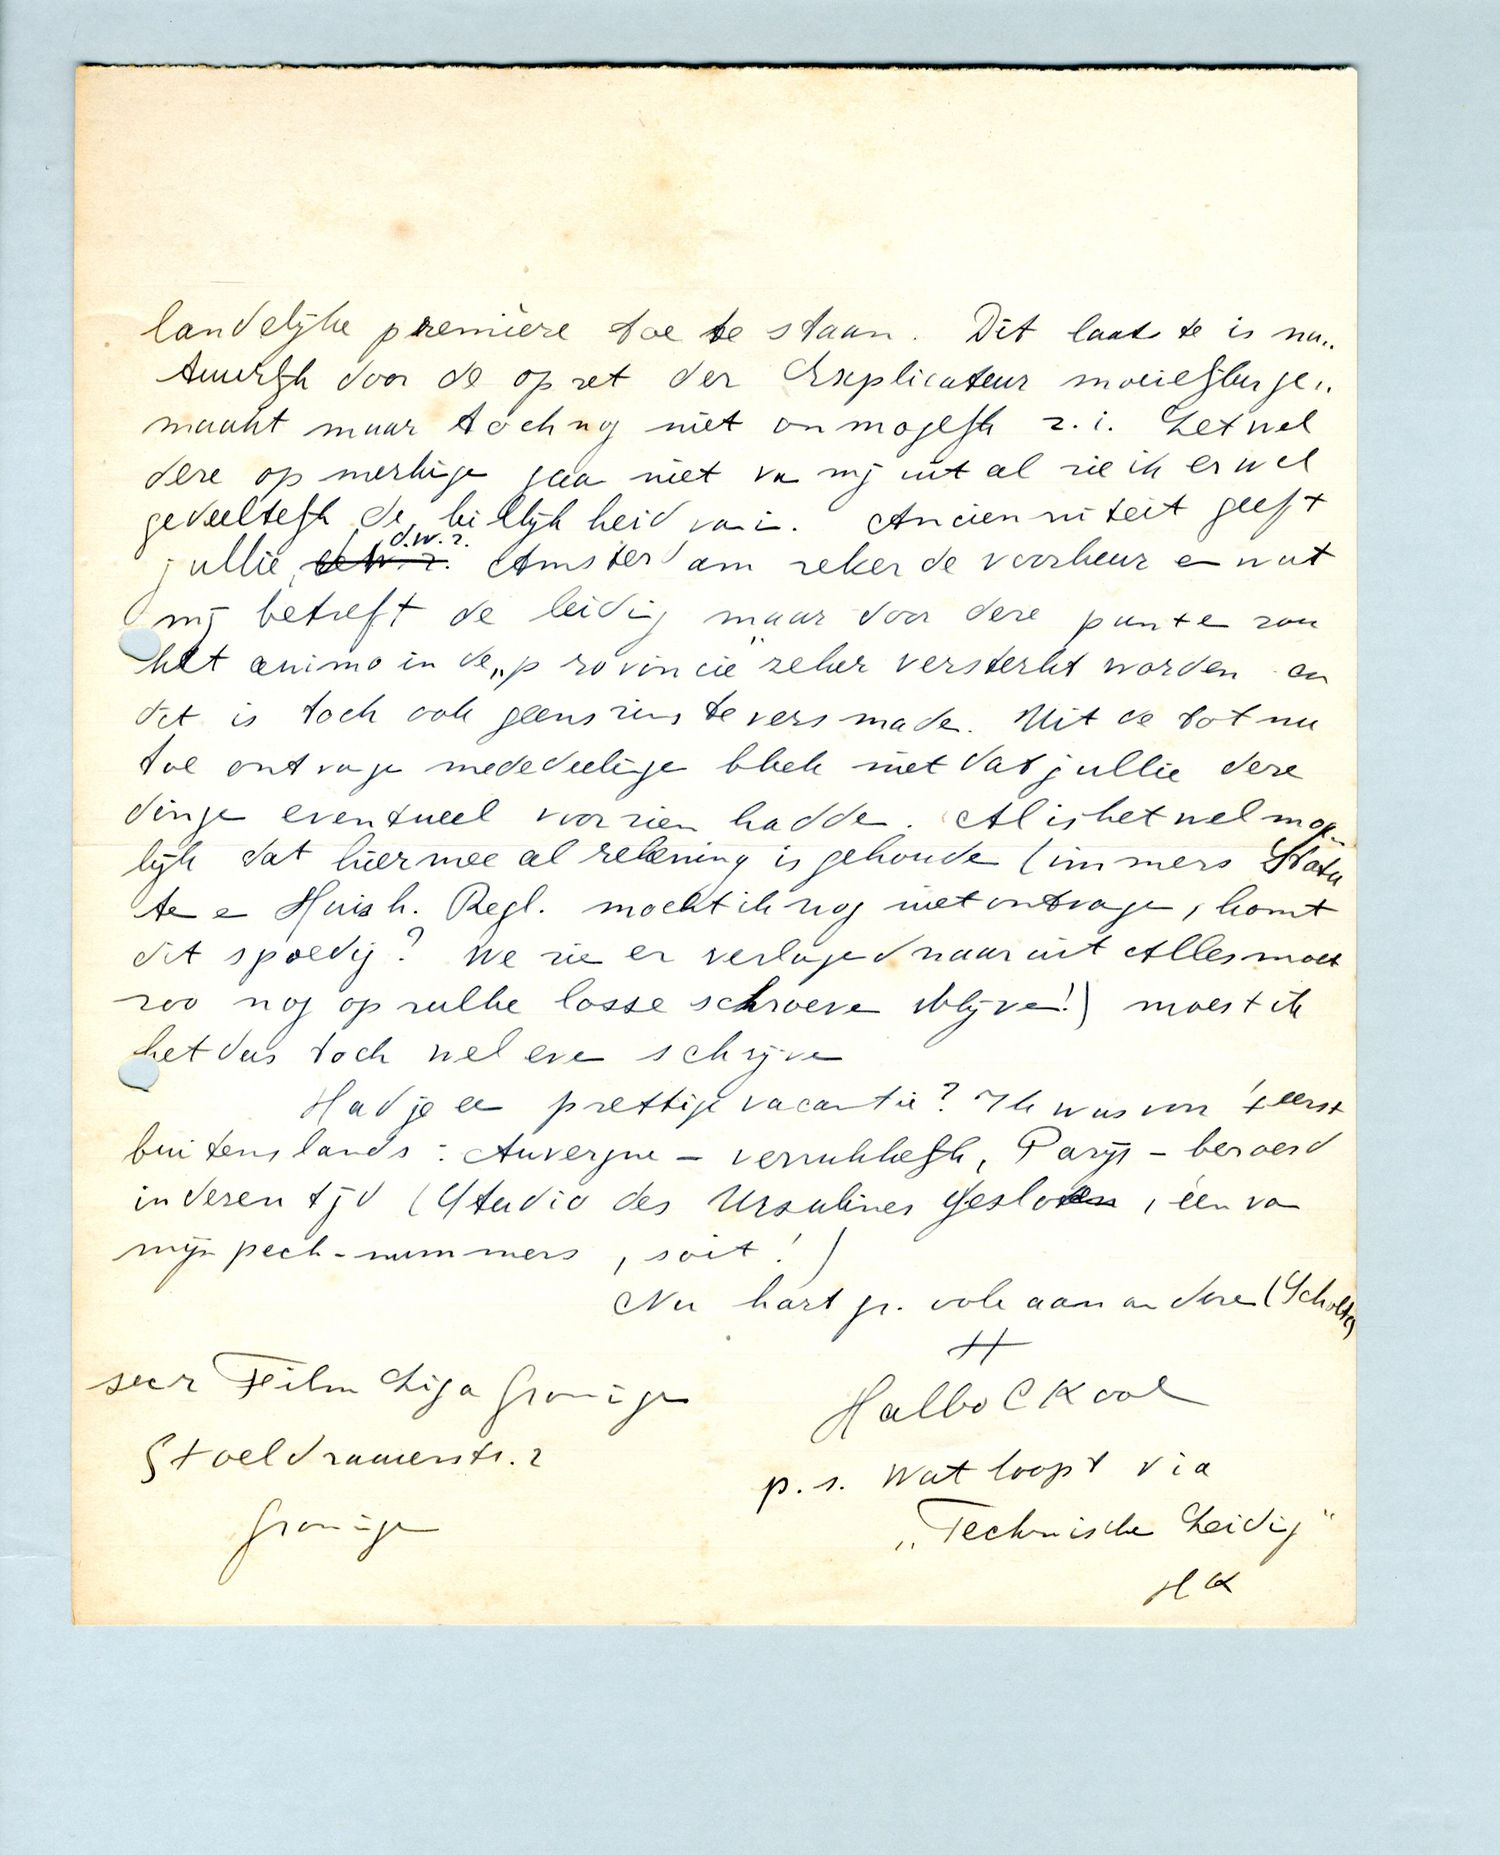 landelijke première toe te staan. Dit laatste is na„
tuurlijk door de opzet der Explicateur moeielijker ge„
maakt maar toch nog niet onmogelijk z.i. Let wel
deze opmerkinge gaa niet va mij uit al zie ik er wel
gedeeltelijk de billijkheid van in. Ancienniteit geeft
jullie, d.w.z. Amsterdam zeker de voorkeur en wat
mij betreft de leiding maar door deze punte zou
het animo in de „provincie" zeker versterkt worden en
dit is toch ook geenszins te versmade. Uit de tot nu
toe ontvange mededeelinge bleek niet dat jullie deze
dinge eventueel voorzien hadde. Al is het wel moge„
lijk dat hiermee al rekening is gehoude (immers Statu
te e Huish. Regl. mocht ik nog niet ontvange, komt
dit spoedig? We zie er verlangend naar uit Alles moet
zoo nog op zulke losse schroeve blijve!) moest ik
het dus toch wel eve schrijve
Had je ee prettige vacantie? Ik was voor 't eerst
buitenslands: Auvergne – verrukkelijk, Parijs – beroerd
in dezen tijd (Studio des Ursulines gesloten, één va
mijn pech-nummers, soit!)
Nu hart gr. ook aan andere (Scholte)
H
Halbo C Kool
secr Film Liga Groninge
Stoeldraaierstr. 2
Groninge
p.s. Wat loopt via
„Technische Leiding"
HK